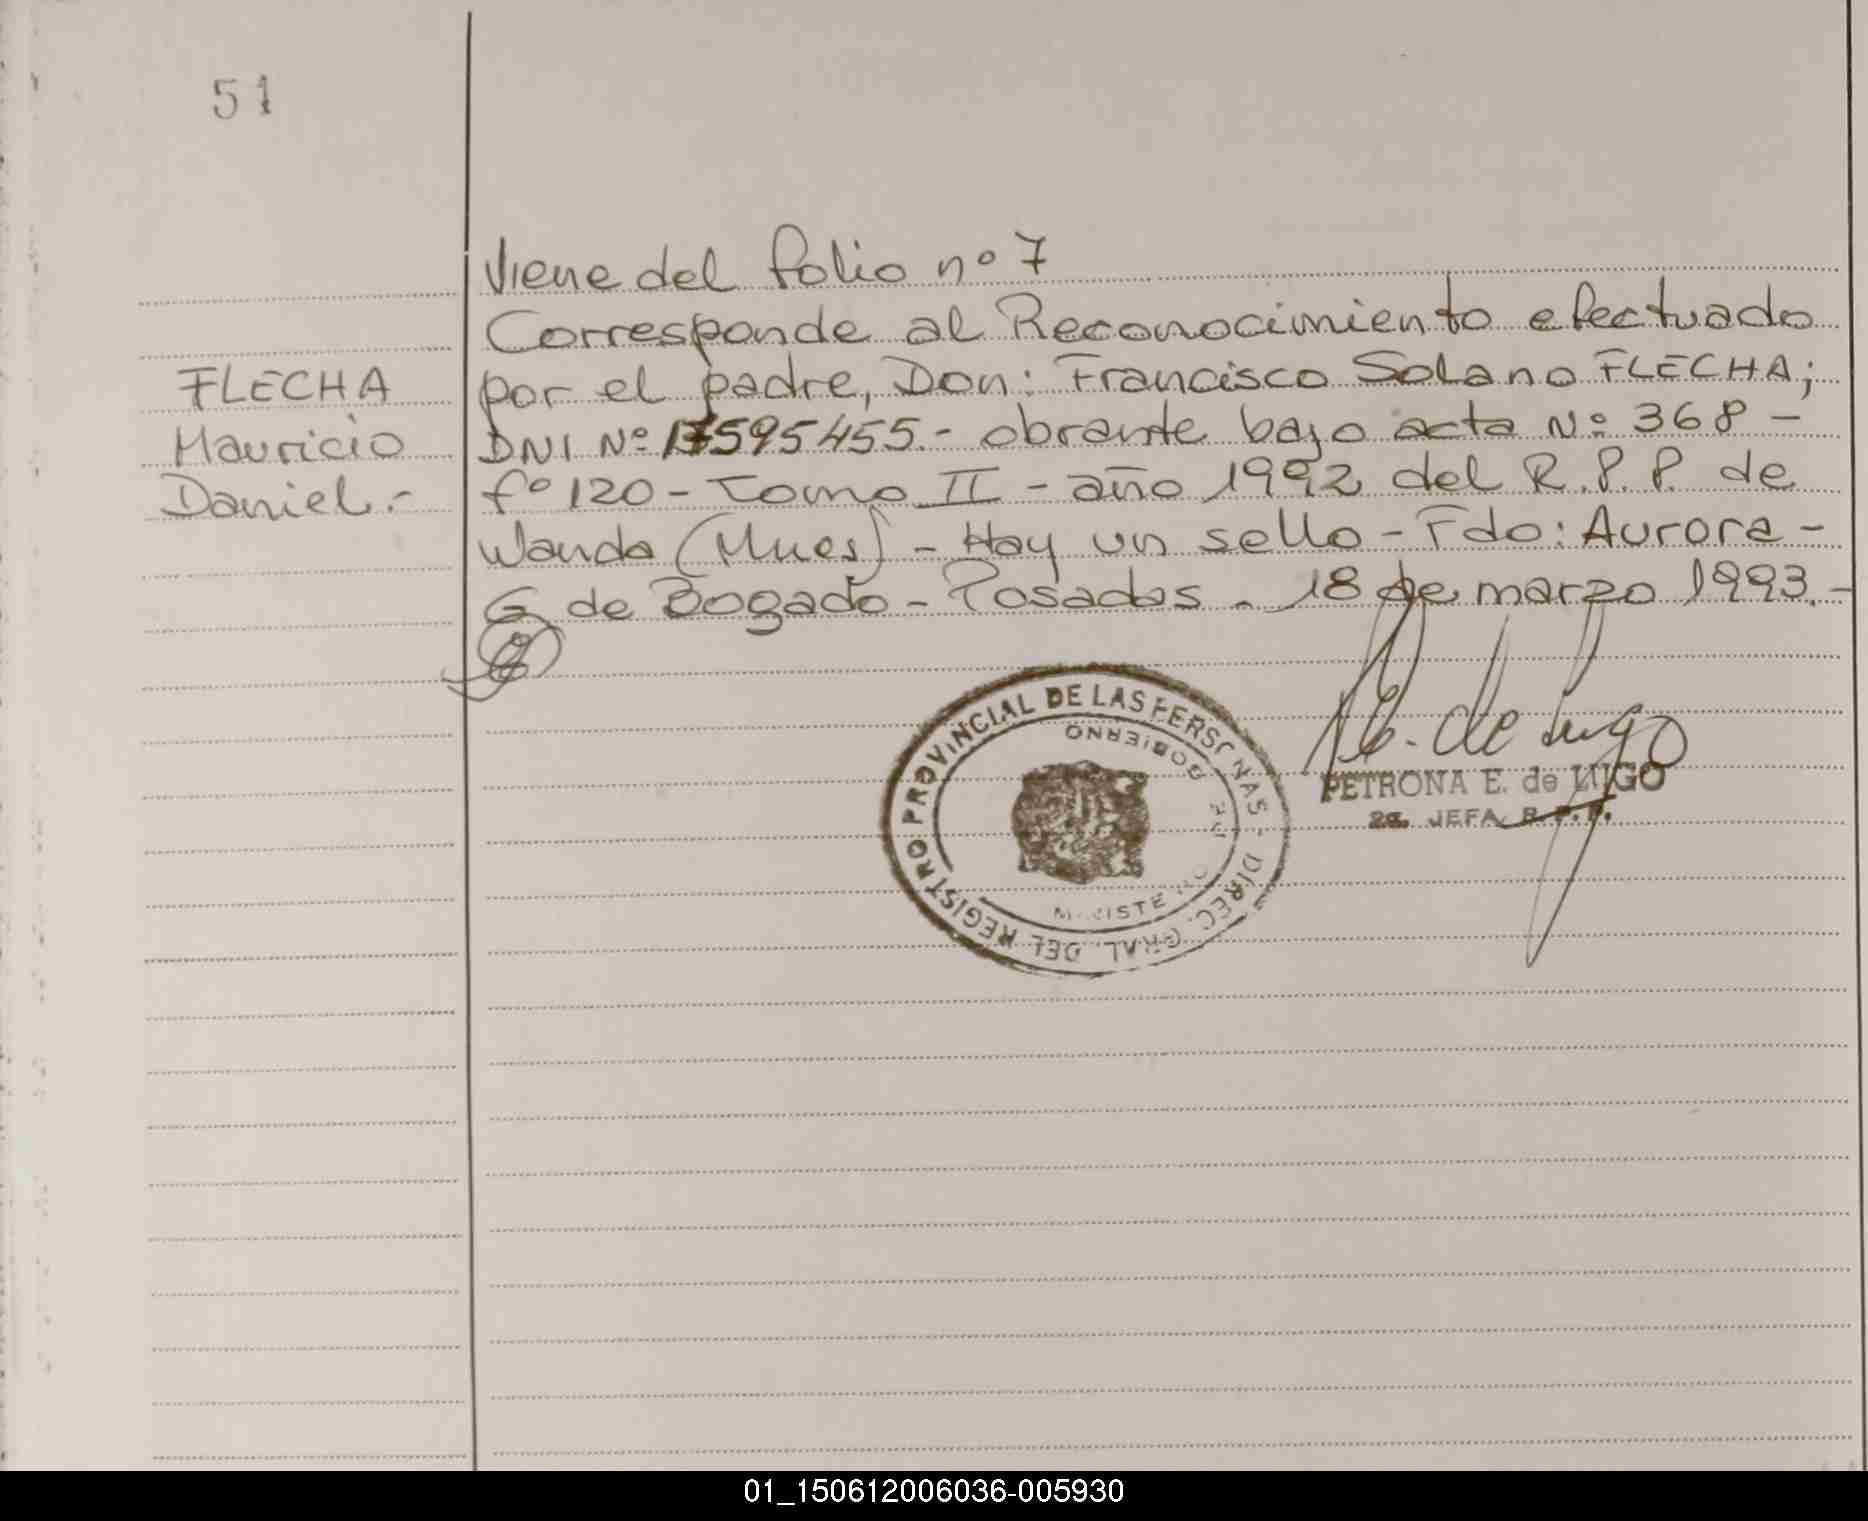 51
Viene del folio nº 7
Corresponde al Reconocimiento efectuado
por el padre, Don: Francisco Solano FLECHA;
DNI Nº 17595455.- obrante bajo acta Nº 368 -
fº 120 - Tomo II - año 1992 del R.P.P. de
Wanda (Mnes) - Hay un sello - Fdo: Aurora -
G de Bogado - Posadas - 18 de marzo 1993.-
FLECHA
Mauricio
Daniel.-
DIREC. GRAL. DEL REGISTRO PROVINCIAL DE LAS PERSONAS -
MINISTERIO DE GOBIERNO
P.E. de Lugo
PETRONA E. de LUGO
2a. JEFA R.P.P.
01_150612006036-005930